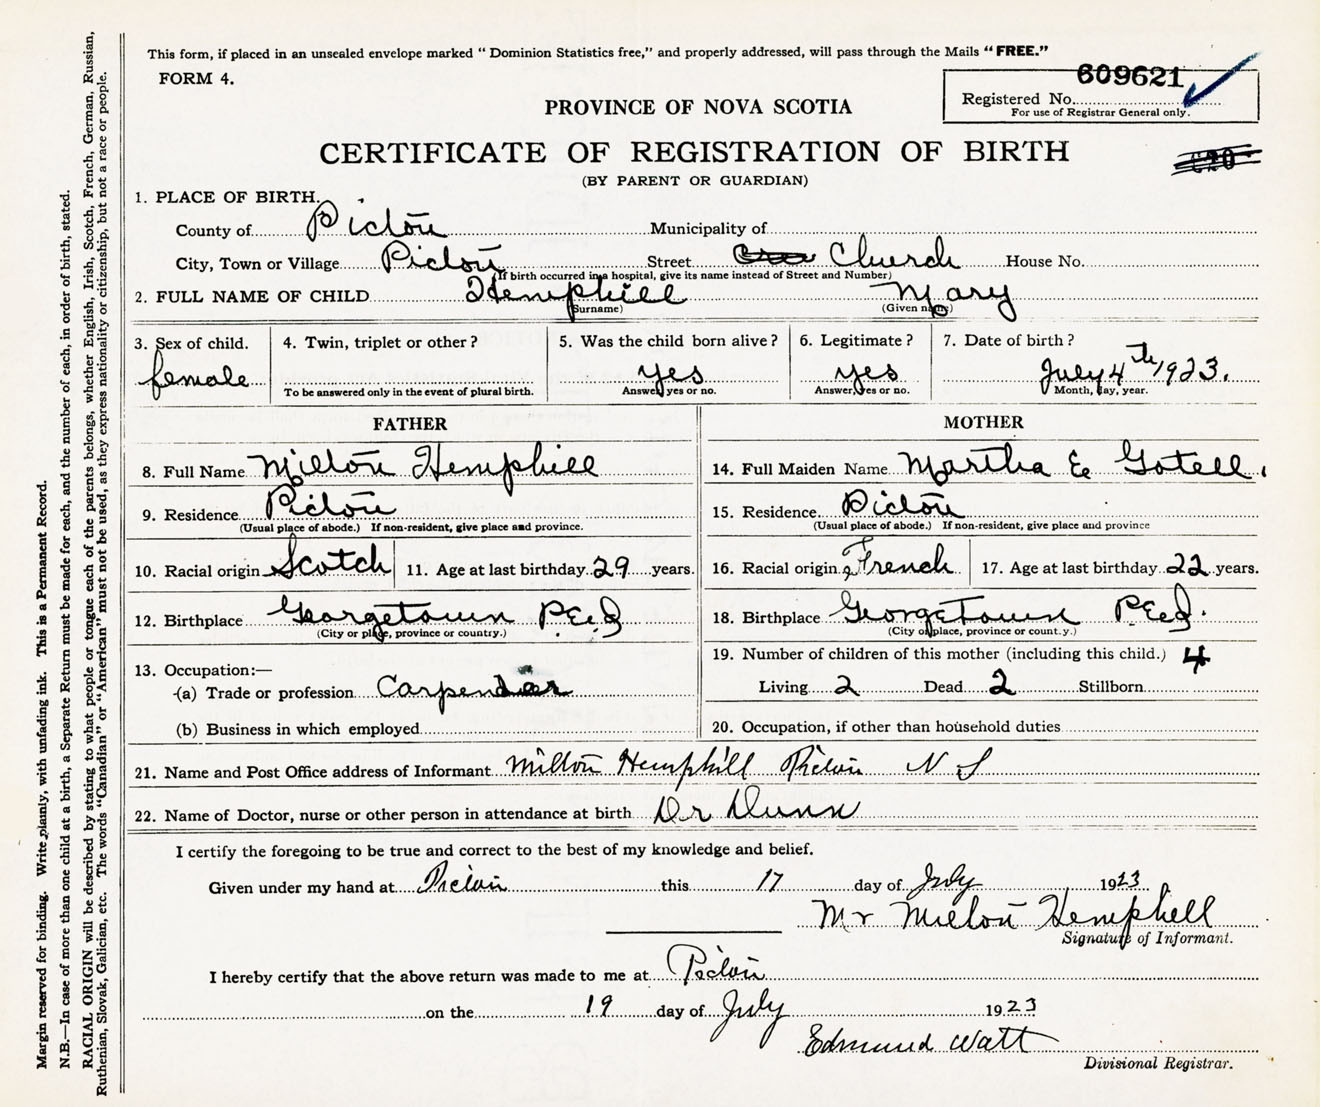 This form, if placed in an unsealed envelope marked “ Dominion Statistics free,” and properly addressed, will pass through the Mails “FREE.”
FORM 4.
609621
Registered No.
For use of Registrar General only.
PROVINCE OF NOVA SCOTIA
CERTIFICATE OF REGISTRATION OF BIRTH
(BY PARENT OR GUARDIAN)
1. PLACE OF BIRTH.
County of Pictou Municipality of
City, Town or Village Pictou Street Church House No.
(If birth occurred in a hospital, give its name instead of Street and Number)
2. FULL NAME OF CHILD Hemphill Mary
(Surname) (Given name)
3. Sex of child. 4. Twin, triplet or other? 5. Was the child born alive? 6. Legitimate? 7. Date of birth?
female yes yes July 4th 1923.
To be answered only in the event of plural birth. Answer, yes or no. Answer, yes or no. Month, day, year.
FATHER MOTHER
8. Full Name Milton Hemphill 14. Full Maiden Name Martha E Gotell.
9. Residence Pictou 15. Residence Pictou
(Usual place of abode.) If non-resident, give place and province. (Usual place of abode.) If non-resident, give place and province
10. Racial origin Scotch 11. Age at last birthday 29 years. 16. Racial origin French 17. Age at last birthday 22 years.
12. Birthplace Georgetown P.E.I 18. Birthplace Georgetown P.E.I.
(City or place, province or country.) (City or place, province or country.)
13. Occupation:— 19. Number of children of this mother (including this child.) 4
(a) Trade or profession Carpender Living 2 Dead 2 Stillborn
(b) Business in which employed 20. Occupation, if other than household duties
21. Name and Post Office address of Informant Milton Hemphill Pictou N S
22. Name of Doctor, nurse or other person in attendance at birth Dr Dunn
I certify the foregoing to be true and correct to the best of my knowledge and belief.
Given under my hand at Pictou this 17 day of July 1923.
Mr Milton Hemphill
Signature of Informant.
I hereby certify that the above return was made to me at Pictou
on the 19 day of July 1923
Edmund Watt
Divisional Registrar.
Margin reserved for binding. Write plainly, with unfading ink. This is a Permanent Record.
N.B.—In case of more than one child at a birth, a Separate Return must be made for each, and the number of each, in order of birth, stated.
RACIAL ORIGIN will be described by stating to what people or tongue each of the parents belongs, whether English, Irish, Scotch, French, German, Russian,
Ruthenian, Slovak, Galician, etc. The words “Canadian” or “American” must not be used, as they express nationality or citizenship, but not a race or people.